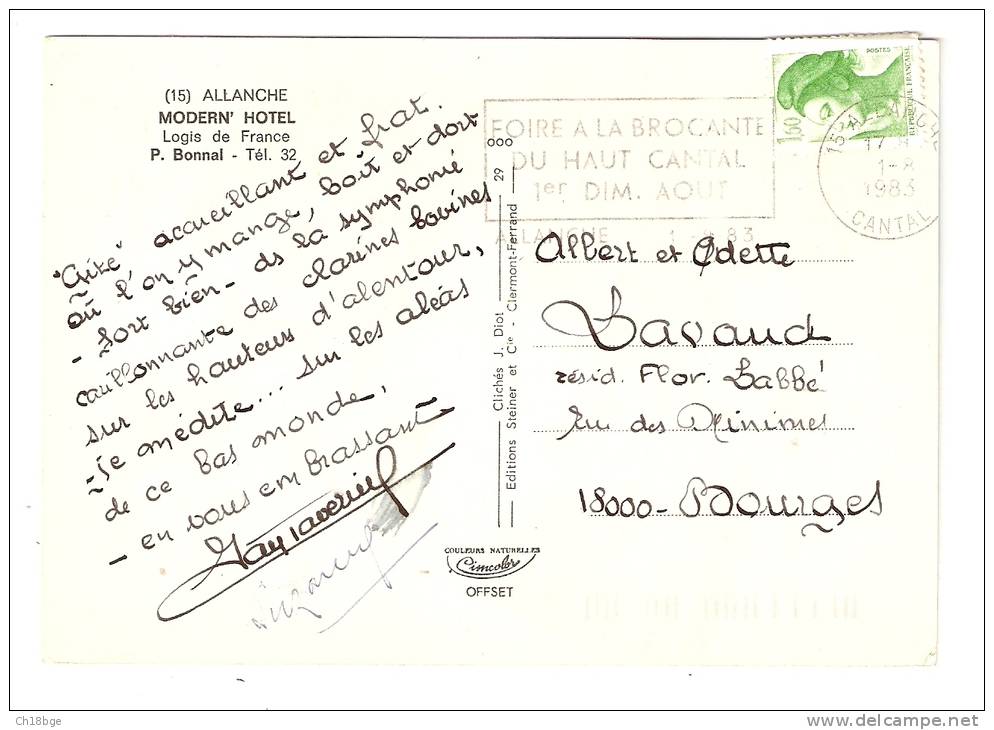 (15) ALLANCHE
MODERN' HOTEL
Logis de France
P. Bonnal - Tél. 32
"Gîte" accueillant et frat.
où l'on y mange, boit et dort
- fort bien - ds la symphonie
carillonnante des clarines bovines
sur les hauteurs d'alentour,
- Je médite... sur les aléas
de ce bas monde,
- en vous embrassant
29
Clichés J. Diot
Editions Steiner et Cie - Clermont-Ferrand
COULEURS NATURELLES
Cimcolor
OFFSET
000
FOIRE A LA BROCANTE
DU HAUT CANTAL
1er DIM. AOUT
ALLANCHE 1-8 83
1,60
POSTES
REPUBLIQUE FRANÇAISE
15 ALLANCHE
17 H
1-8
1983
CANTAL
Albert et Odette
Lavaud
résid. Flor. Labbé
Rue des Minimes
18000 - Bourges
Ch18bge
www.delcampe.net